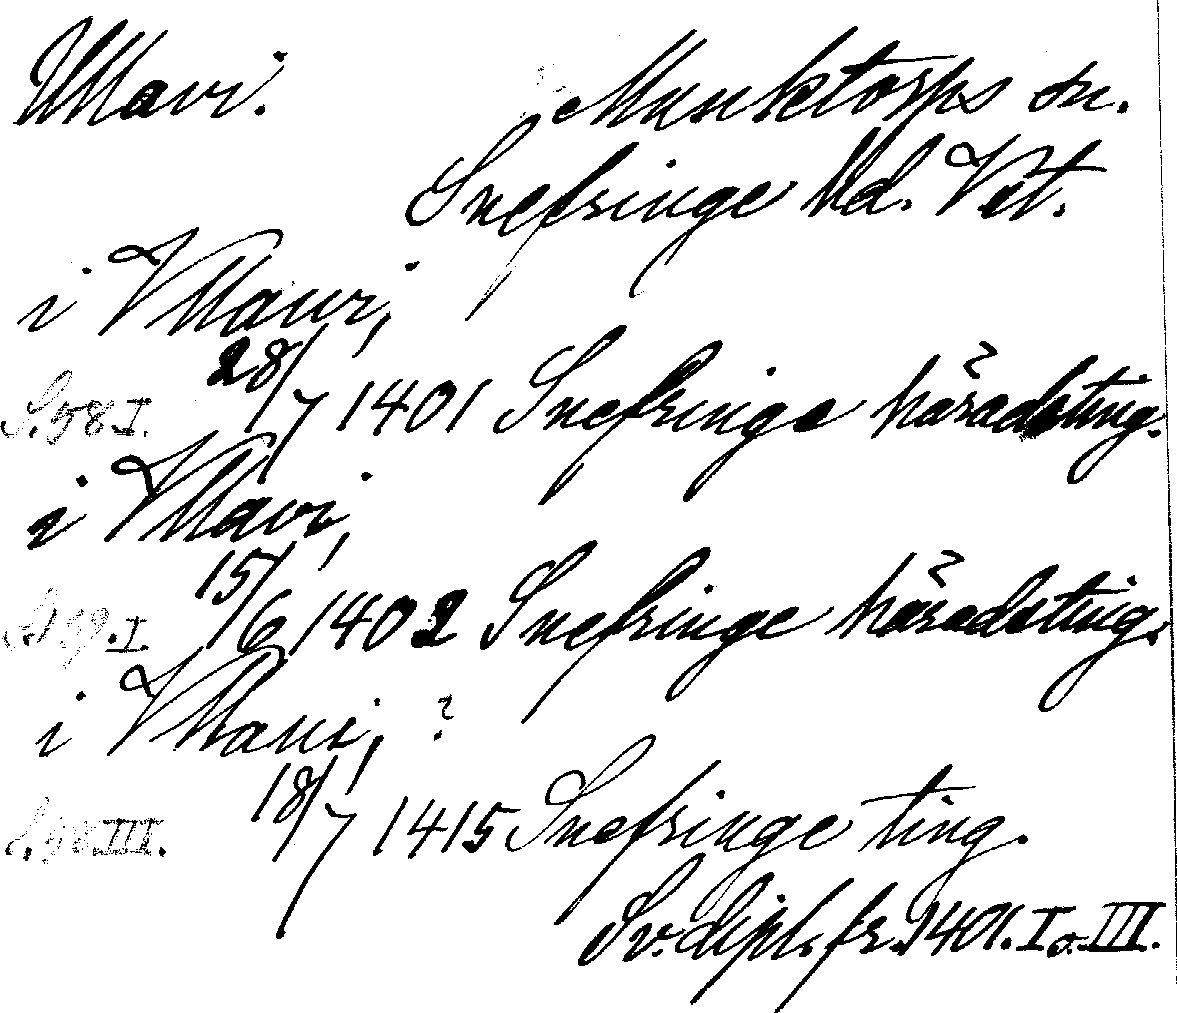 Ullavi. Munktorps sn.
Snefringe hd. Vst.
i Vllauri,
S. 58 I. 28/7 1401 Snefringe häradsting.
i Vllavi,
S. 59. I. 15/6 1402 Snefringe häradsting.
i Vllaui, ?
S. III. 18/7 1415 Snefringe ting.
Sv. dipl. fr. 1401. I o. III.